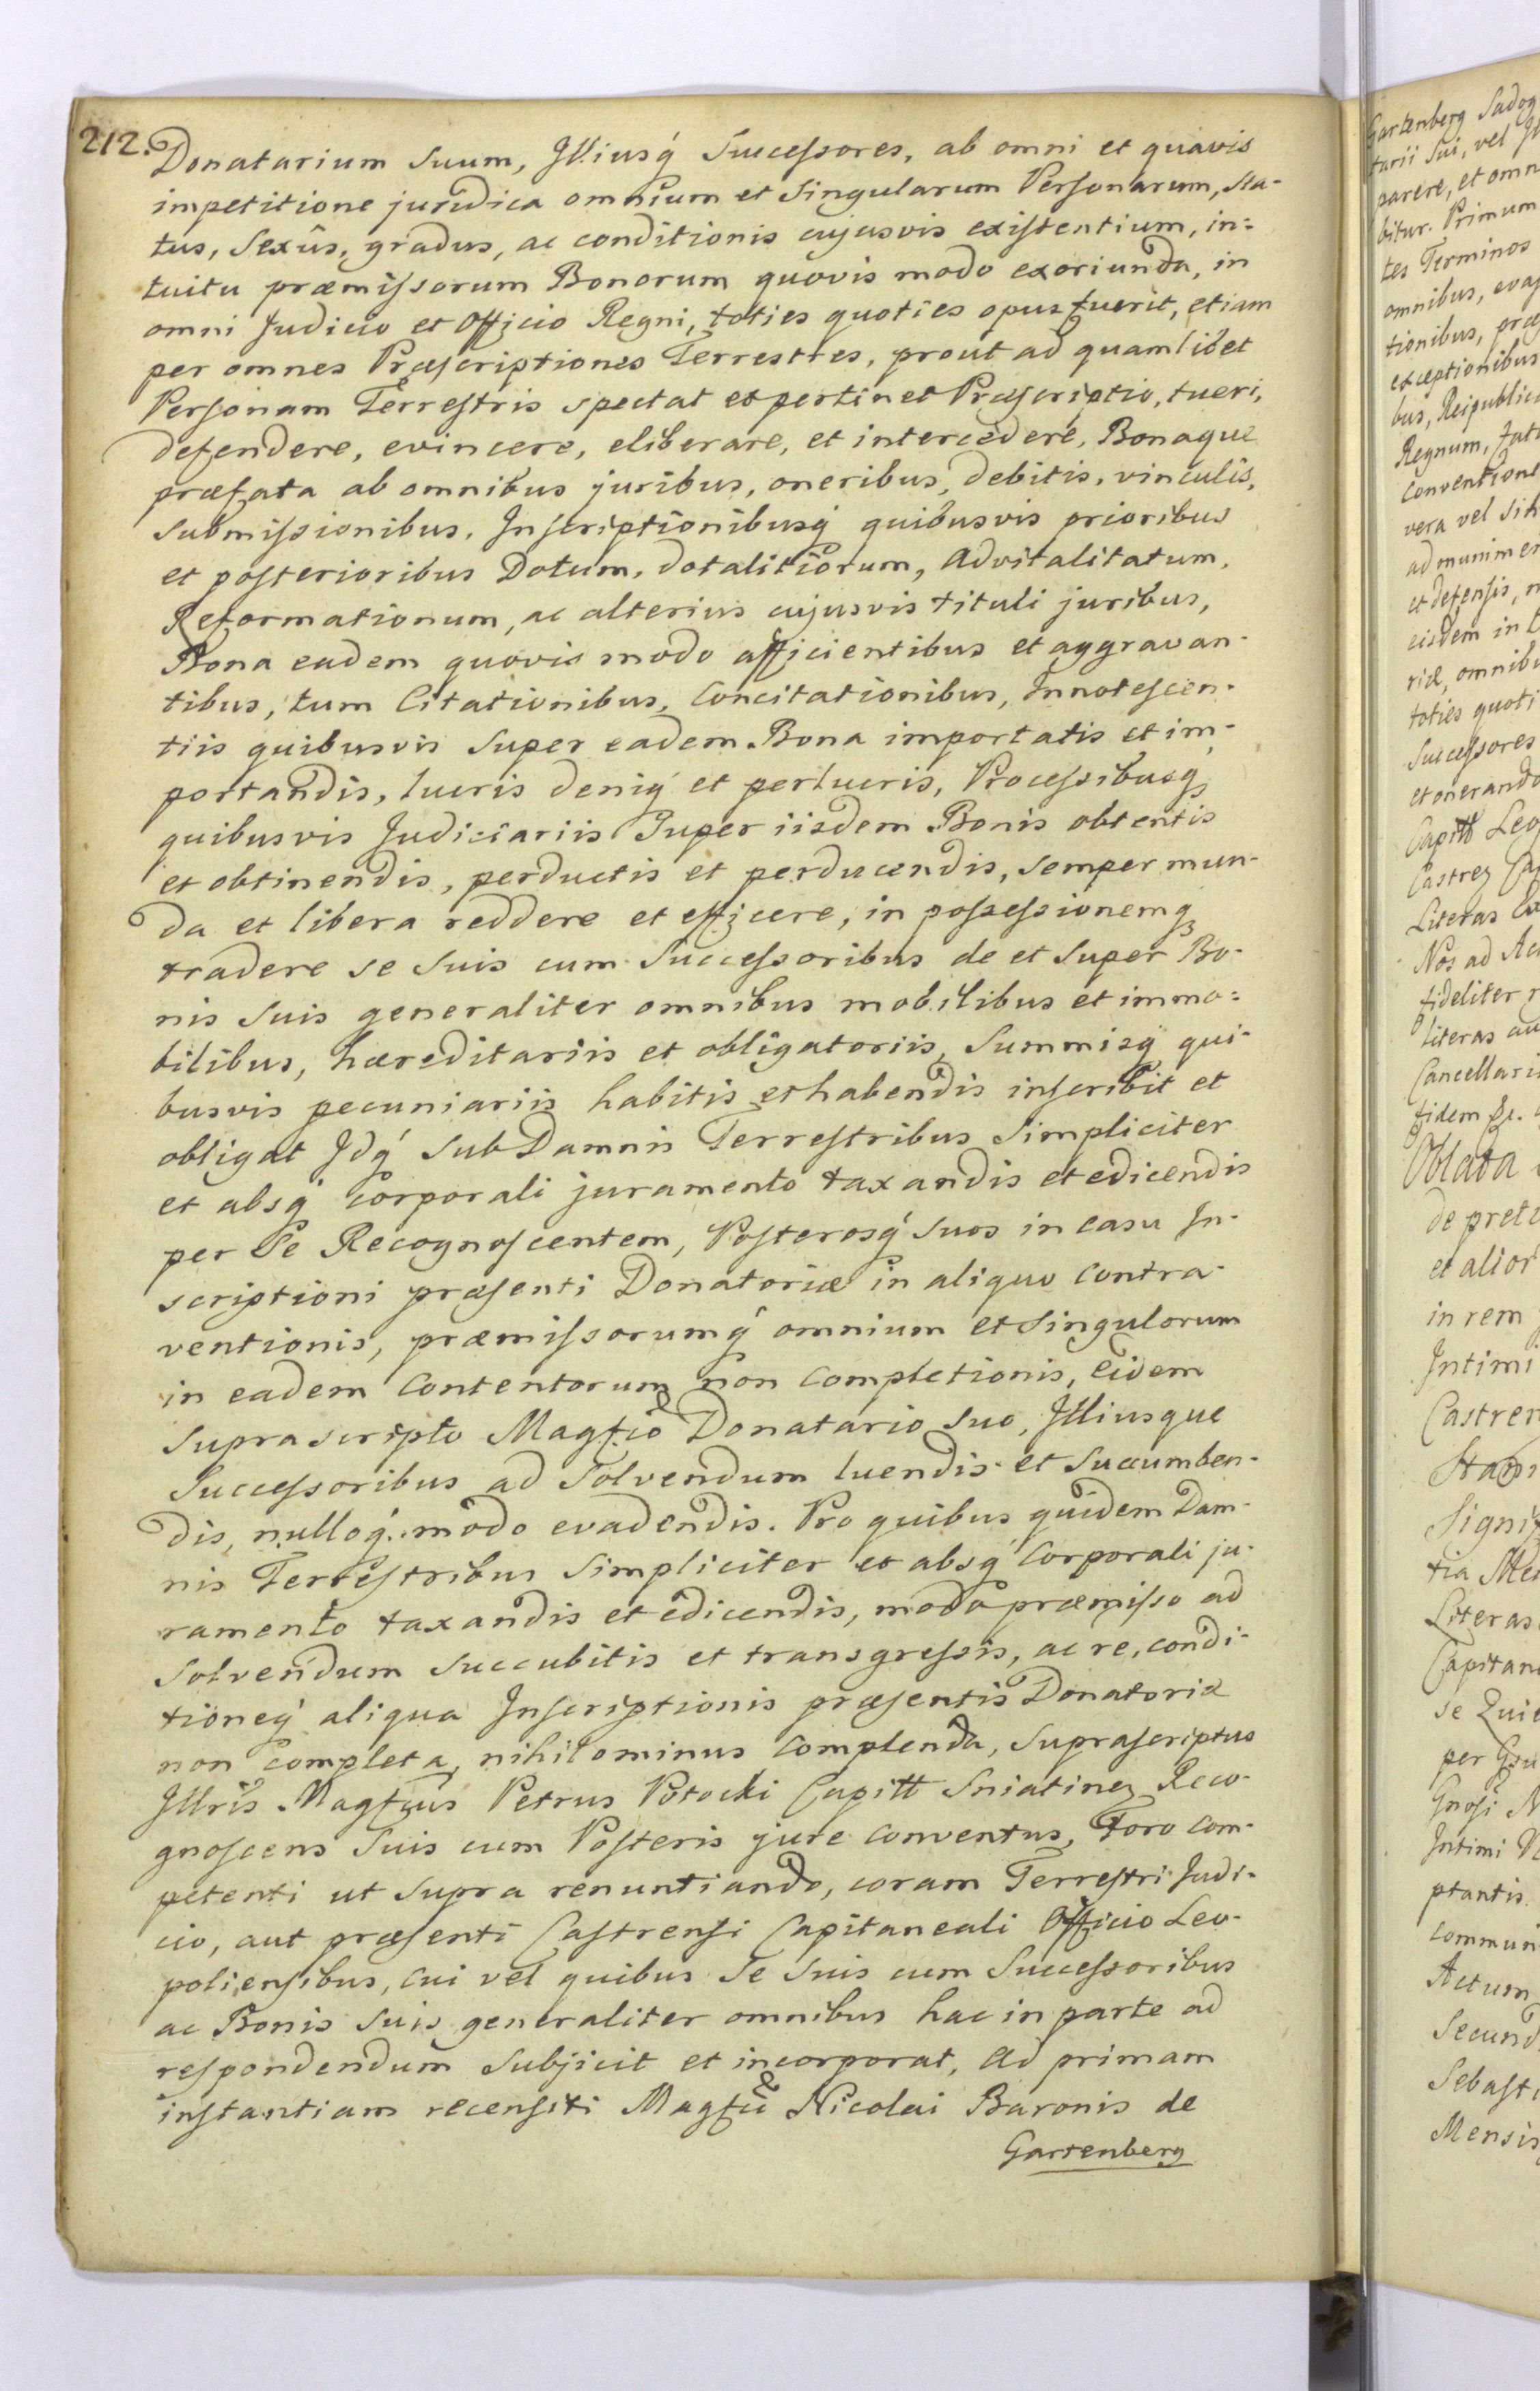 212.
Donatarium Suum, Illiusq́ Successores, ab omni et quavis
impetitione juridica omnium et Singularum Personarum, Sta-
tus, Sexûs, gradus, ac conditionis cujusvis existentium, in=
tuitu præmissorum Bonorum quovis modo exoriunda, in
omni Judicio et Officio Regni, toties quoties opus fuerit, etiam
per omnes Præscriptiones Terrestres, prout ad quamlibet
Personam Terrestris spectat et pertinet Præscriptio, tueri,
defendere, evincere, eliberare, et intercedere, Bonaque
præfata ab omnibus juribus, oneribus, debitis, vinculis,
Submissionibus, Inscriptionibusq́ quibusvis prioribus
et posterioribus Dotum, dotalitiorum, Advitalitatum,
Reformationum, ac alterius cujusvis tituli juribus,
Bona eadem quovis modo afficientibus et aggravan-
tibus, tum Citationibus, Concitationibus, Innotescen-
tiis quibusvis Super eadem Bona importatis et im-
portandis, lucris deniq́ et perlucris, Processibusq́
quibusvis Judiciariis Super iisdem Bonis obtentis
et obtinendis, perductis et perducendis, semper mun-
da et libera reddere et efficere, in possessionemq́
tradere se Suis cum Successoribus de et Super Bo-
nis Suis generaliter omnibus mobilibus et immo=
bilibus, hæreditariis et obligatoriis, Summisq́ qui-
busvis pecuniariis habitis et habendis inscribit et
obligat Idq́ Sub Damnis Terrestribus Simpliciter
et absq́ corporali juramento taxandis et edicendis
per Se Recognoscentem, Posterosq́ Suos in casu In-
scriptioni præsenti Donatoriæ in aliquo Contra-
ventionis, præmissorumq́ omnium et Singulorum
in eadem Contentorum non Completionis, Eidem
Suprascripto Magfico Donatario Suo, Illiusque
Successoribus ad Solvendum luendis et Succumben-
dis, nulloq́ modo evadendis. Pro quibus quidem Dam-
nis Terrestribus Simpliciter et absq́ Corporali ju-
ramento taxandis et edicendis, modo præmisso ad
Solvendum Succubitis et transgressis, ac re, condi-
tioneq́ aliqua Inscriptionis præsentis Donatoriæ
non completa, nihilominus Complenda, Suprascriptus
Illris Magfcus Petrus Potocki Capitt Sniatinez Reco-
gnoscens Suis cum Posteris jure Conventus, Foro Com-
petenti ut Supra renuntiando, coram Terrestri Judi-
cio, aut præsenti Castrensi Capitaneali Officio Leo-
poliensibus, Cui vel quibus Se Suis cum Successoribus
ac Bonis Suis generaliter omnibus hac in parte ad
respondendum Subjicit et incorporat, Ad primam
instantiam recensiti Magfci Nicolai Baronis de
Gartenberg
Gartenberg Sadog
tarii Sui, vel
parere, et omn
bitur. Primum
tes Terminos
omnibus, eva
tionibus, præ
exceptionibus
bus, Reipublicæ
Regnum,
Conventione
vera vel
ad
et defensis,
eisdem in
riæ, omnibu
toties quoti
Successores
et onerando
Capitt Leo
Castrez
Literas
Nos ad
fideliter
literas
Cancellari
fidem
Oblata
de preti
et alior
in rem
Intimi
Castren
Signif
tia
Literas
Capitan
se
per
Gnosi
Intimi
ptantis
Commun
Actum
Secund
Sebasti
Mensis